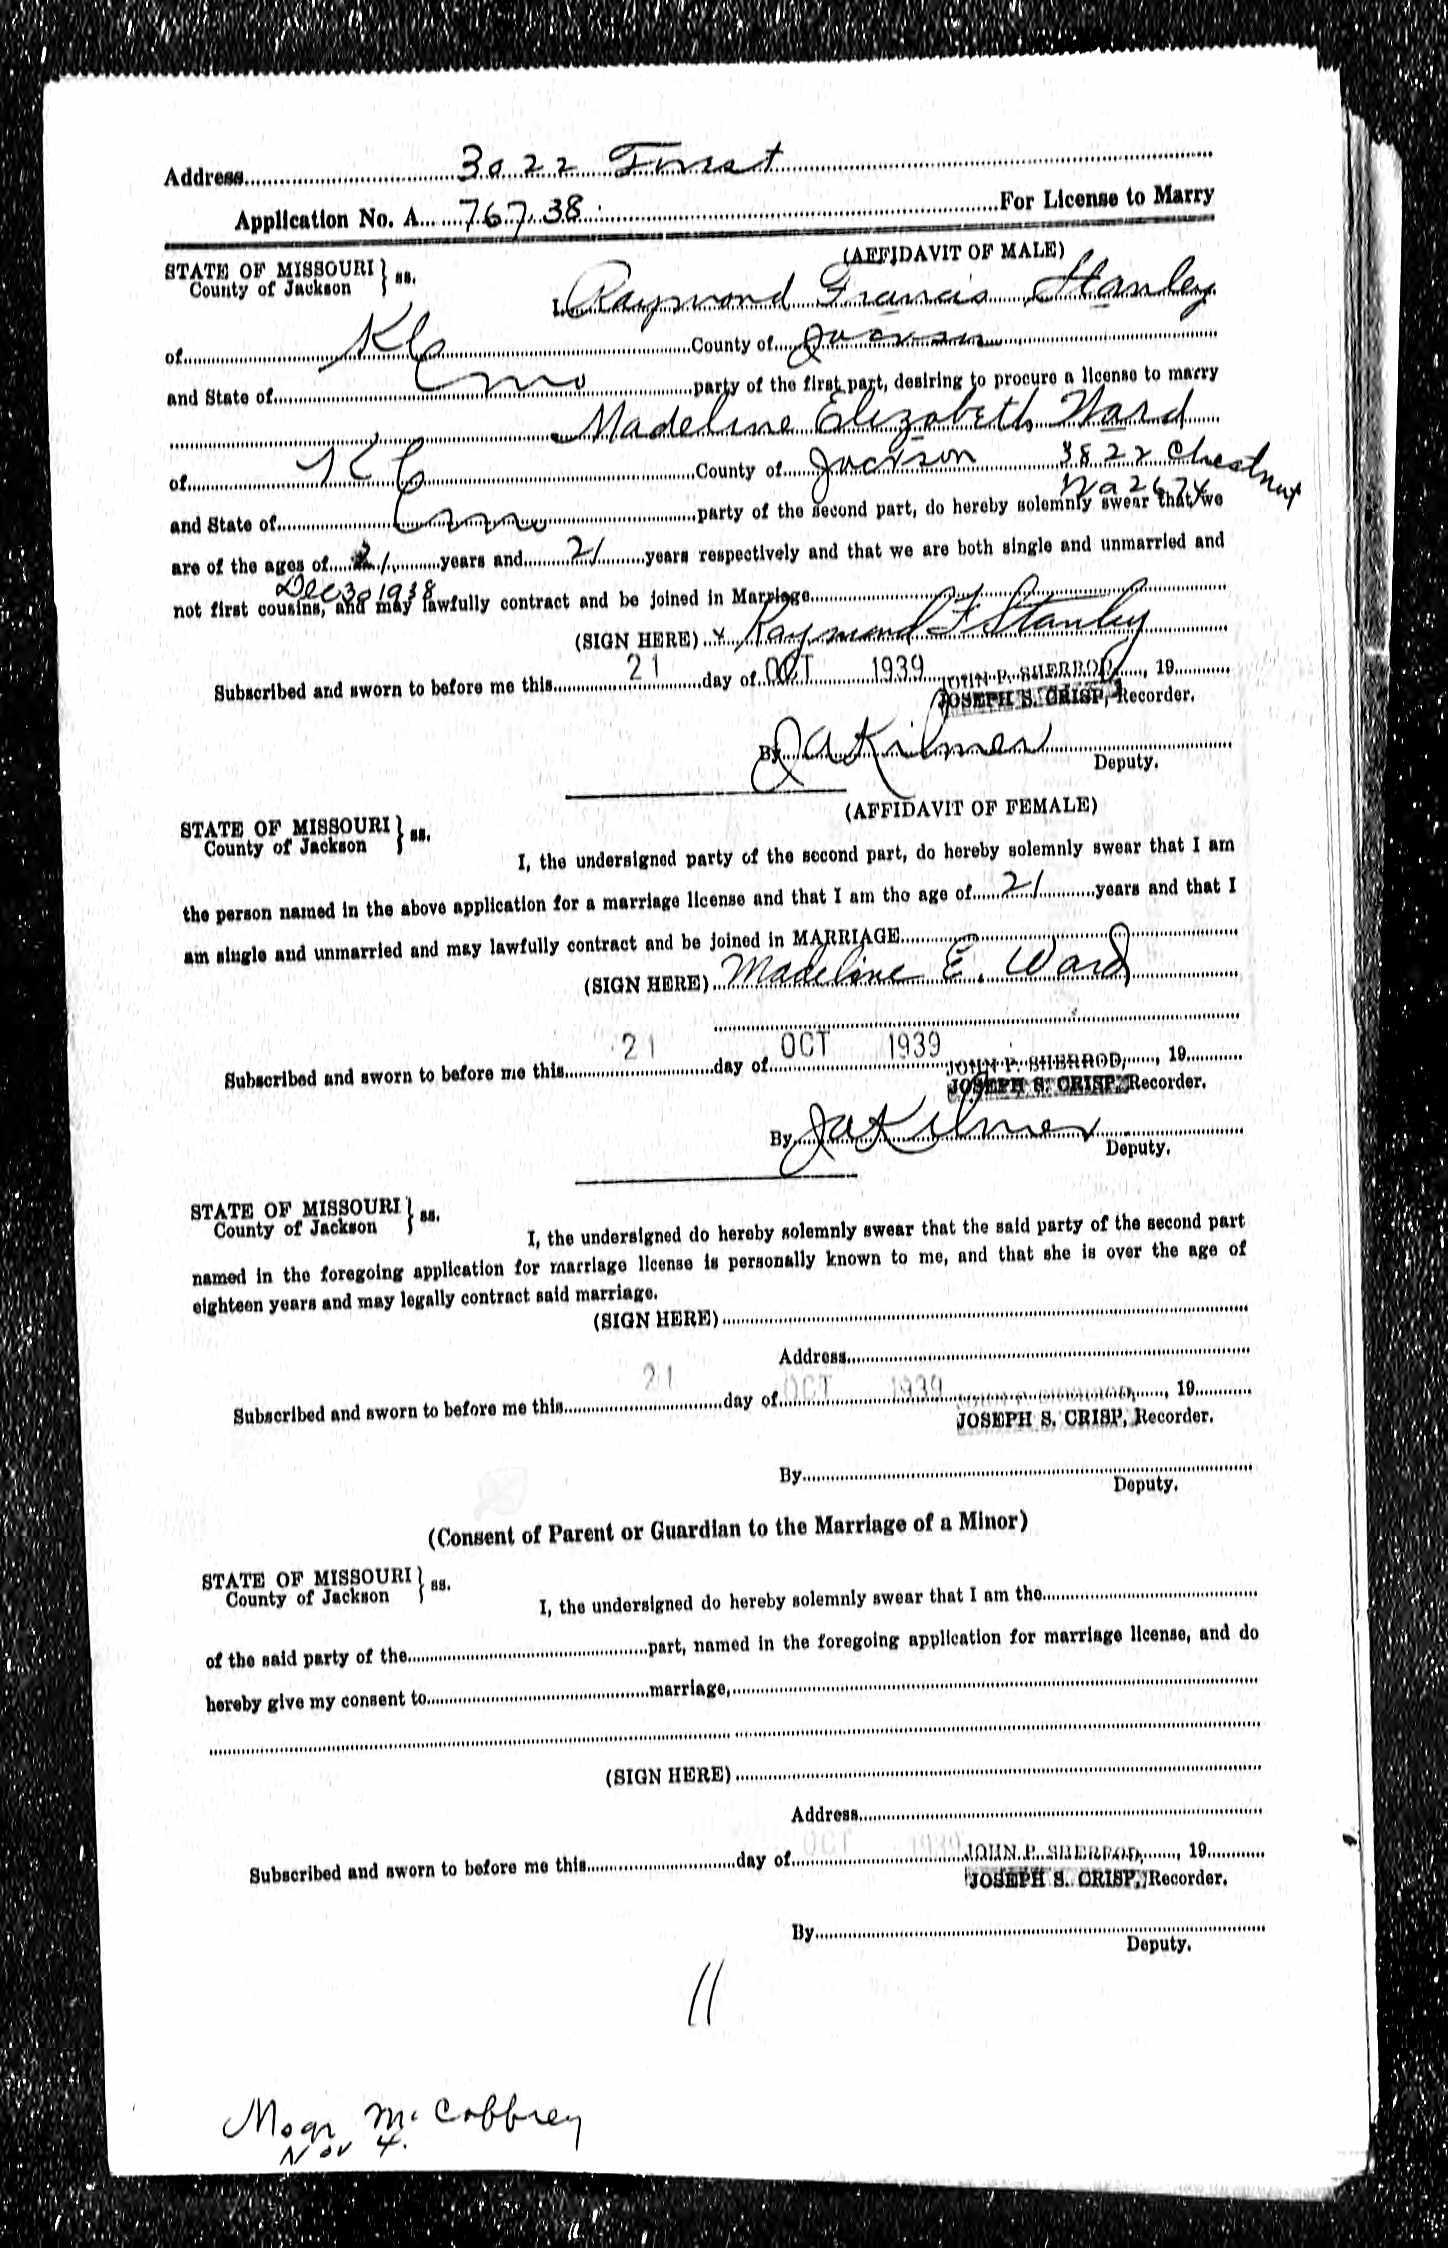 Address 3022 Forest
Application No. A 76738 For License to Marry
(AFFIDAVIT OF MALE)
STATE OF MISSOURI } ss.
County of Jackson
I, Raymond Francis Stanley
of K C County of Jackson
and State of Mo party of the first part, desiring to procure a license to marry
Madeline Elizabeth Ward
of K C County of Jackson 3822 Chestnut
Wa 2674
and State of Mo party of the second part, do hereby solemnly swear that we
are of the ages of 21 years and 21 years respectively and that we are both single and unmarried and
Dec 30 1938
not first cousins, and may lawfully contract and be joined in Marriage
(SIGN HERE) x Raymond F Stanley
Subscribed and sworn to before me this 21 day of OCT 1939 JOHN P. SHERROD, 19
JOSEPH S. CRISP, Recorder.
By J A Kilmer
Deputy.
(AFFIDAVIT OF FEMALE)
STATE OF MISSOURI } ss.
County of Jackson
I, the undersigned party of the second part, do hereby solemnly swear that I am
the person named in the above application for a marriage license and that I am the age of 21 years and that I
am single and unmarried and may lawfully contract and be joined in MARRIAGE
(SIGN HERE) Madeline E. Ward
Subscribed and sworn to before me this 21 day of OCT 1939 JOHN P. SHERROD, 19
JOSEPH S. CRISP, Recorder.
By J A Kilmer
Deputy.
STATE OF MISSOURI } ss.
County of Jackson
I, the undersigned do hereby solemnly swear that the said party of the second part
named in the foregoing application for marriage license is personally known to me, and that she is over the age of
eighteen years and may legally contract said marriage.
(SIGN HERE)
Address
Subscribed and sworn to before me this 21 day of OCT 1939 JOHN P. SHERROD, 19
JOSEPH S. CRISP, Recorder.
By
Deputy.
(Consent of Parent or Guardian to the Marriage of a Minor)
STATE OF MISSOURI } ss.
County of Jackson
I, the undersigned do hereby solemnly swear that I am the
of the said party of the part, named in the foregoing application for marriage license, and do
hereby give my consent to marriage,
(SIGN HERE)
Address
Subscribed and sworn to before me this day of OCT 1939 JOHN P. SHERROD, 19
JOSEPH S. CRISP, Recorder.
By
Deputy.
11
Mc Caffrey
Nov 4.